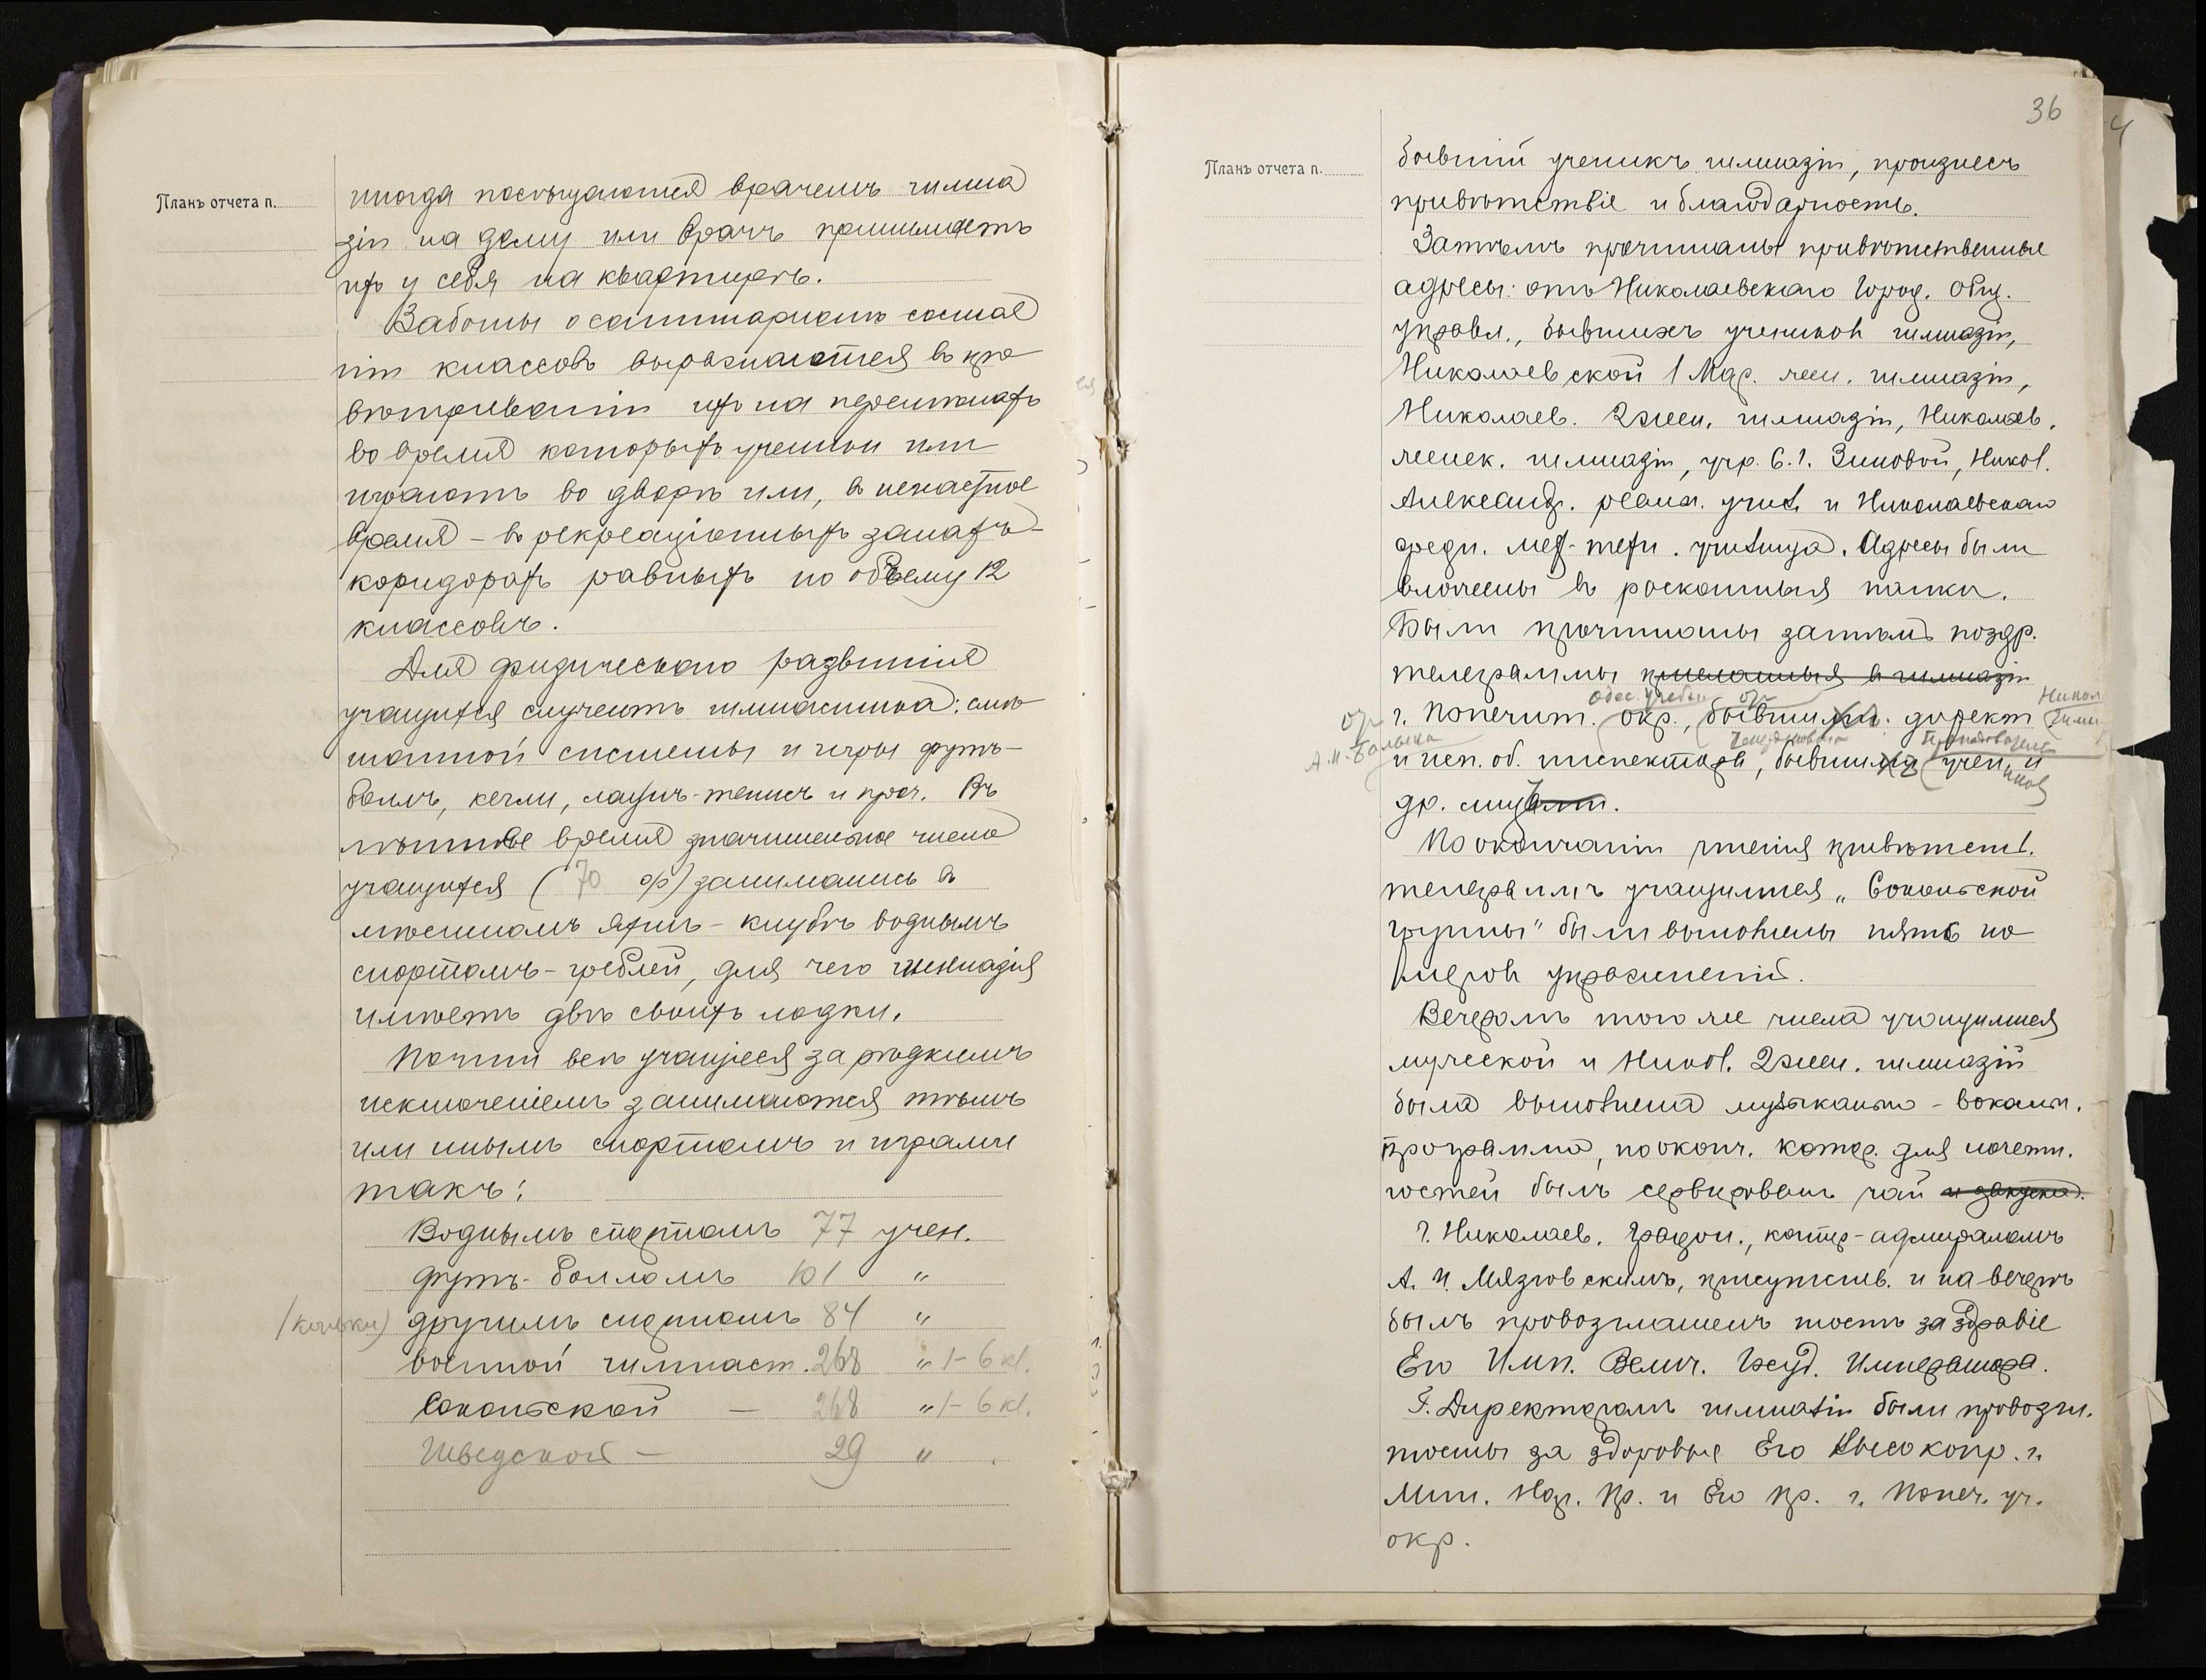 Планъ отчета п.
иногда посѣщаются врачемъ гимна
зіи на дому или врачъ принимаетъ
ихъ у себя на квартирѣ.
Заботы о санитарномъ состоя
ніи классовъ выражаются въ про
вѣтриваніи ихъ на переменахъ
во время которыхъ ученики или
играютъ во дворѣ или, въ ненастное
время – въ рекреаціонныхъ залахъ-
коридорахъ равныхъ по объему 12
классовъ.
Для физическаго развитія
учащихся служитъ гимнастика: смѣ
шанной системы и игры футъ-
боллъ, кегли, лаунъ-тенисъ и проч. Въ
лѣтнее время значительное число
учащихся ( 70 ) занимались въ
мѣстномъ яхтъ-клубѣ воднымъ
спортомъ – греблей, для чего гимназія
имѣетъ двѣ своихъ лодки.
Почти всѣ учащіеся за рѣдкимъ
исключеніемъ занимаются тѣмъ
или инымъ спортомъ и играми
такъ:
Воднымъ спортомъ 77 учен.
футъ-болломъ 101 "
/коньки) другимъ спортомъ 84 "
военной гимнаст. 268 " 1-6 кл.
Сокольской — 268 " 1-6 кл.
Шведской — 29 "
36
Планъ отчета п.
бывшій ученикъ гимназіи, произнесъ
привѣтствіе и благодарность.
Затѣмъ прочитаны привѣтственные
адресы: отъ Николаевскаго Город. Общ.
управл., бывшихъ учениковъ гимназіи,
Николаевской 1 Мар. жен. гимназіи,
Николаев. 2 жен. гимназіи, Николаев.
женск. гимназіи, учр. С. 1. Зиновой, Никол.
Александ. реальн. учил. и Николаевскаго
средн. мех-техн. училища. Адресы были
вложены въ роскошныя папки.
Были прочитаны затѣмъ поздр.
телеграммы присланныя въ гимназію
Одес. учебн. отъ Никол
отъ г. Попечит. окр., бывшихъ директ. гимн
А. И. Балыка
и исп. об. инспектора, бывшихъ учен. и
иков
др. лицъ.
По окончаніи чтенія привѣтств.
телеграммъ учащимися „Сокольской
группы" были выполнены пять но
меровъ упражненій.
Вечеромъ того же числа учащимися
мужской и Никол. 2 жен. гимназій
была выполнена музыкально-вокальн.
программа, по оконч. котор. для почетн.
гостей былъ сервированъ чай и закуска.
Г. Николаев. Градон., контръ-адмираломъ
А. И. Мязговскимъ, присутств. и на вечерѣ
былъ провозглашенъ тостъ за здравіе
Его Имп. Велич. Госуд. Императора.
Г. Директоромъ гимназіи были провозгл.
тосты за здоровье Его Высокопр. г.
Мин. Нар. Пр. и Его Пр. г. Попеч. уч.
окр.